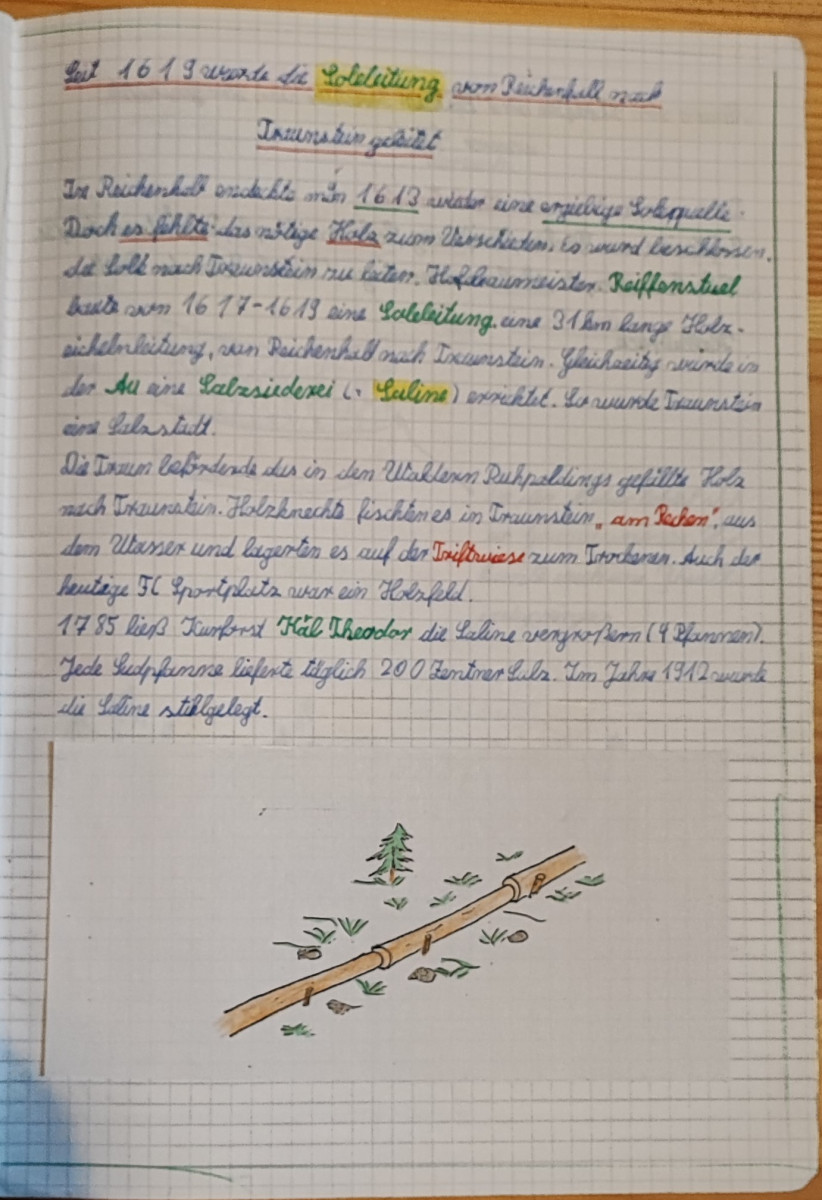 Seit 1619 wurde die Soleleitung von Reichenhall nach
Traunstein geleitet
In Reichenhall endeckte man 1613 wieder eine ergiebige Solequelle.
Doch es fehlte das nötige Holz zum Verschieden. Es wurd beschlossen,
die Sole nach Traunstein zu leiten. Hofbaumeister Reiffenstuel
baute von 1617-1619 eine Soleleitung, eine 31 km lange Holz-
eichelnleitung, von Reichenhall nach Traunstein. Gleichzeitig würde in
der Au eine Salzsiederei (= Saline) errichtet. So wurde Traunstein
eine Salzstadt.
Die Traun beförderde das in den Wäldern Ruhpoldings gefällte Holz
nach Traunstein. Holzknechte fischten es in Traunstein „am Rechen", aus
dem Wasser und lagerten es auf der Triftwiese zum Trockenen. Auch der
heutige FC Sportplatz war ein Holzfeld.
1785 ließ Kurforst Kal Theodor die Saline vergroßern (4 Pfannen).
Jede Sudpfanne lieferte täglich 200 Zentner Salz. Im Jahre 1912 wurde
die Saline stillgelegt.